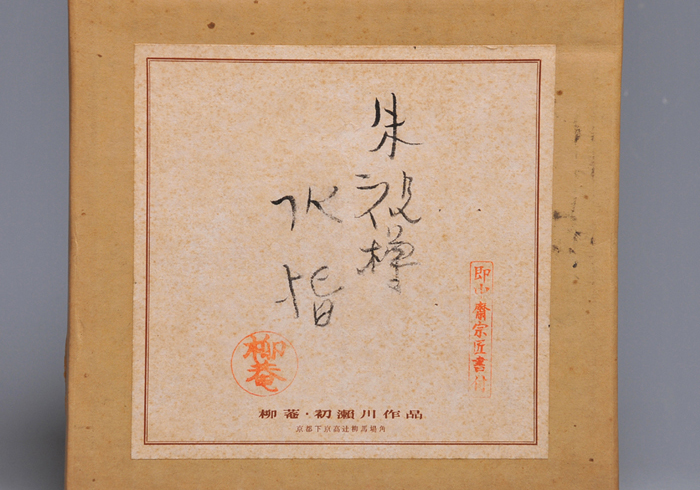 朱役樽
水指
即中齋宗匠書付
柳菴
柳菴・初瀬川作品
京都下京高辻柳馬場角